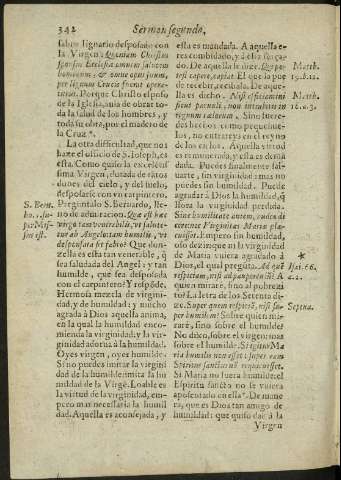 342 Sermon segundo,
sabio lignario desposarse con
la Virgen: Quoniam Christus
sponsus Ecclesiæ omnium salutem
hominum, & omne opus suum,
per lignum Crucis fuerat opera-
turus. Porque Christo esposo
de la Iglesia, auia de obrar to-
da la salud de los hombres, y
toda su obra, por el madero de
la Cruz.
La otra dificultad, que nos
haze el oficio de S. Ioseph, es
esta. Como quiso la excelen-
sima Virgen, dotada de tãtos
dones del cielo, y del suelo,
desposarse con vn carpintero.
S. Bern.
Preguntalo S. Bernardo, lle-
no de admiracion. Quæ est hæc
virgo tam venerabilis, vt salute-
tur ab Angelo: tam humilis, vt
desponsata sit fabro? Que don-
zella es esta tan venerable, q̃
sea saludada del Angel; y tan
humilde, que sea desposada
con el carpintero? Y respõde,
Hermosa mezcla de virgini-
dad, y de humildad; y mucho
agrada à Dios aquella anima,
en la qual la humildad enco-
mienda la virginidad: y la vir-
ginidad adorna à la humildad.
Oyes virgen, oyes humilde:
Si no puedes imitar la virgini
dad de la humilde: imita la hu-
mildad de la Virgẽ. Loable es
la virtud de la virginidad, em-
pero mas necessaria la humil
dad. Aquella es aconsejada, y
esta es mandada. A aquella e-
res combidado, y à esta força-
do. De aquella se dize. Qui po-
Matth.
test capere, capiat. El que lo po
de recebir, recibalo. De aque-
lla es dicho. Nisi efficiamini
Matth.
sicut paruuli, non intrabitis in
regnum cœlorum. Sino fuere-
des hechos como pequeñue-
los, no entrareys en el reyno
de los cielos. Aquella virtud
es remunerada, y esta es demã
dada. Puedes finalmente sal-
uarte, sin virginidad: mas no
puedes sin humildad. Puede
agradar à Dios la humildad, q̃
llora la virginidad perdida.
Sine humilitate autem, audeo di-
cere: nec Virginitas Mariæ pla-
cuisset. Empero sin humildad,
oso dezir que ni la virginidad
de Maria vuiera agradado à
Dios, el qual pregũta. Ad quẽ
Isai. 66.
respiciam, nisi ad pauperculũ? A
c. 2.
quien miraré, sino al pobrezi
to? La letra de los Setenta di-
ze. Super quem respiciã, nisi su-
Septua.
per humilem? Sobre quien mi-
raré, sino sobre el humilde?
No dixo, sobre el virgen: mas
sobre el humilde. Si igitur Ma
ria humilis non esset: super eam
Spiritus sanctus nõ requieuisset.
Si Maria no fuera humilde: el
Espiritu sancto no se vuiera
aposentado en ella. De mane
ra, que es Dios tan amigo de
humildad: que quiso dar à la
Virgen